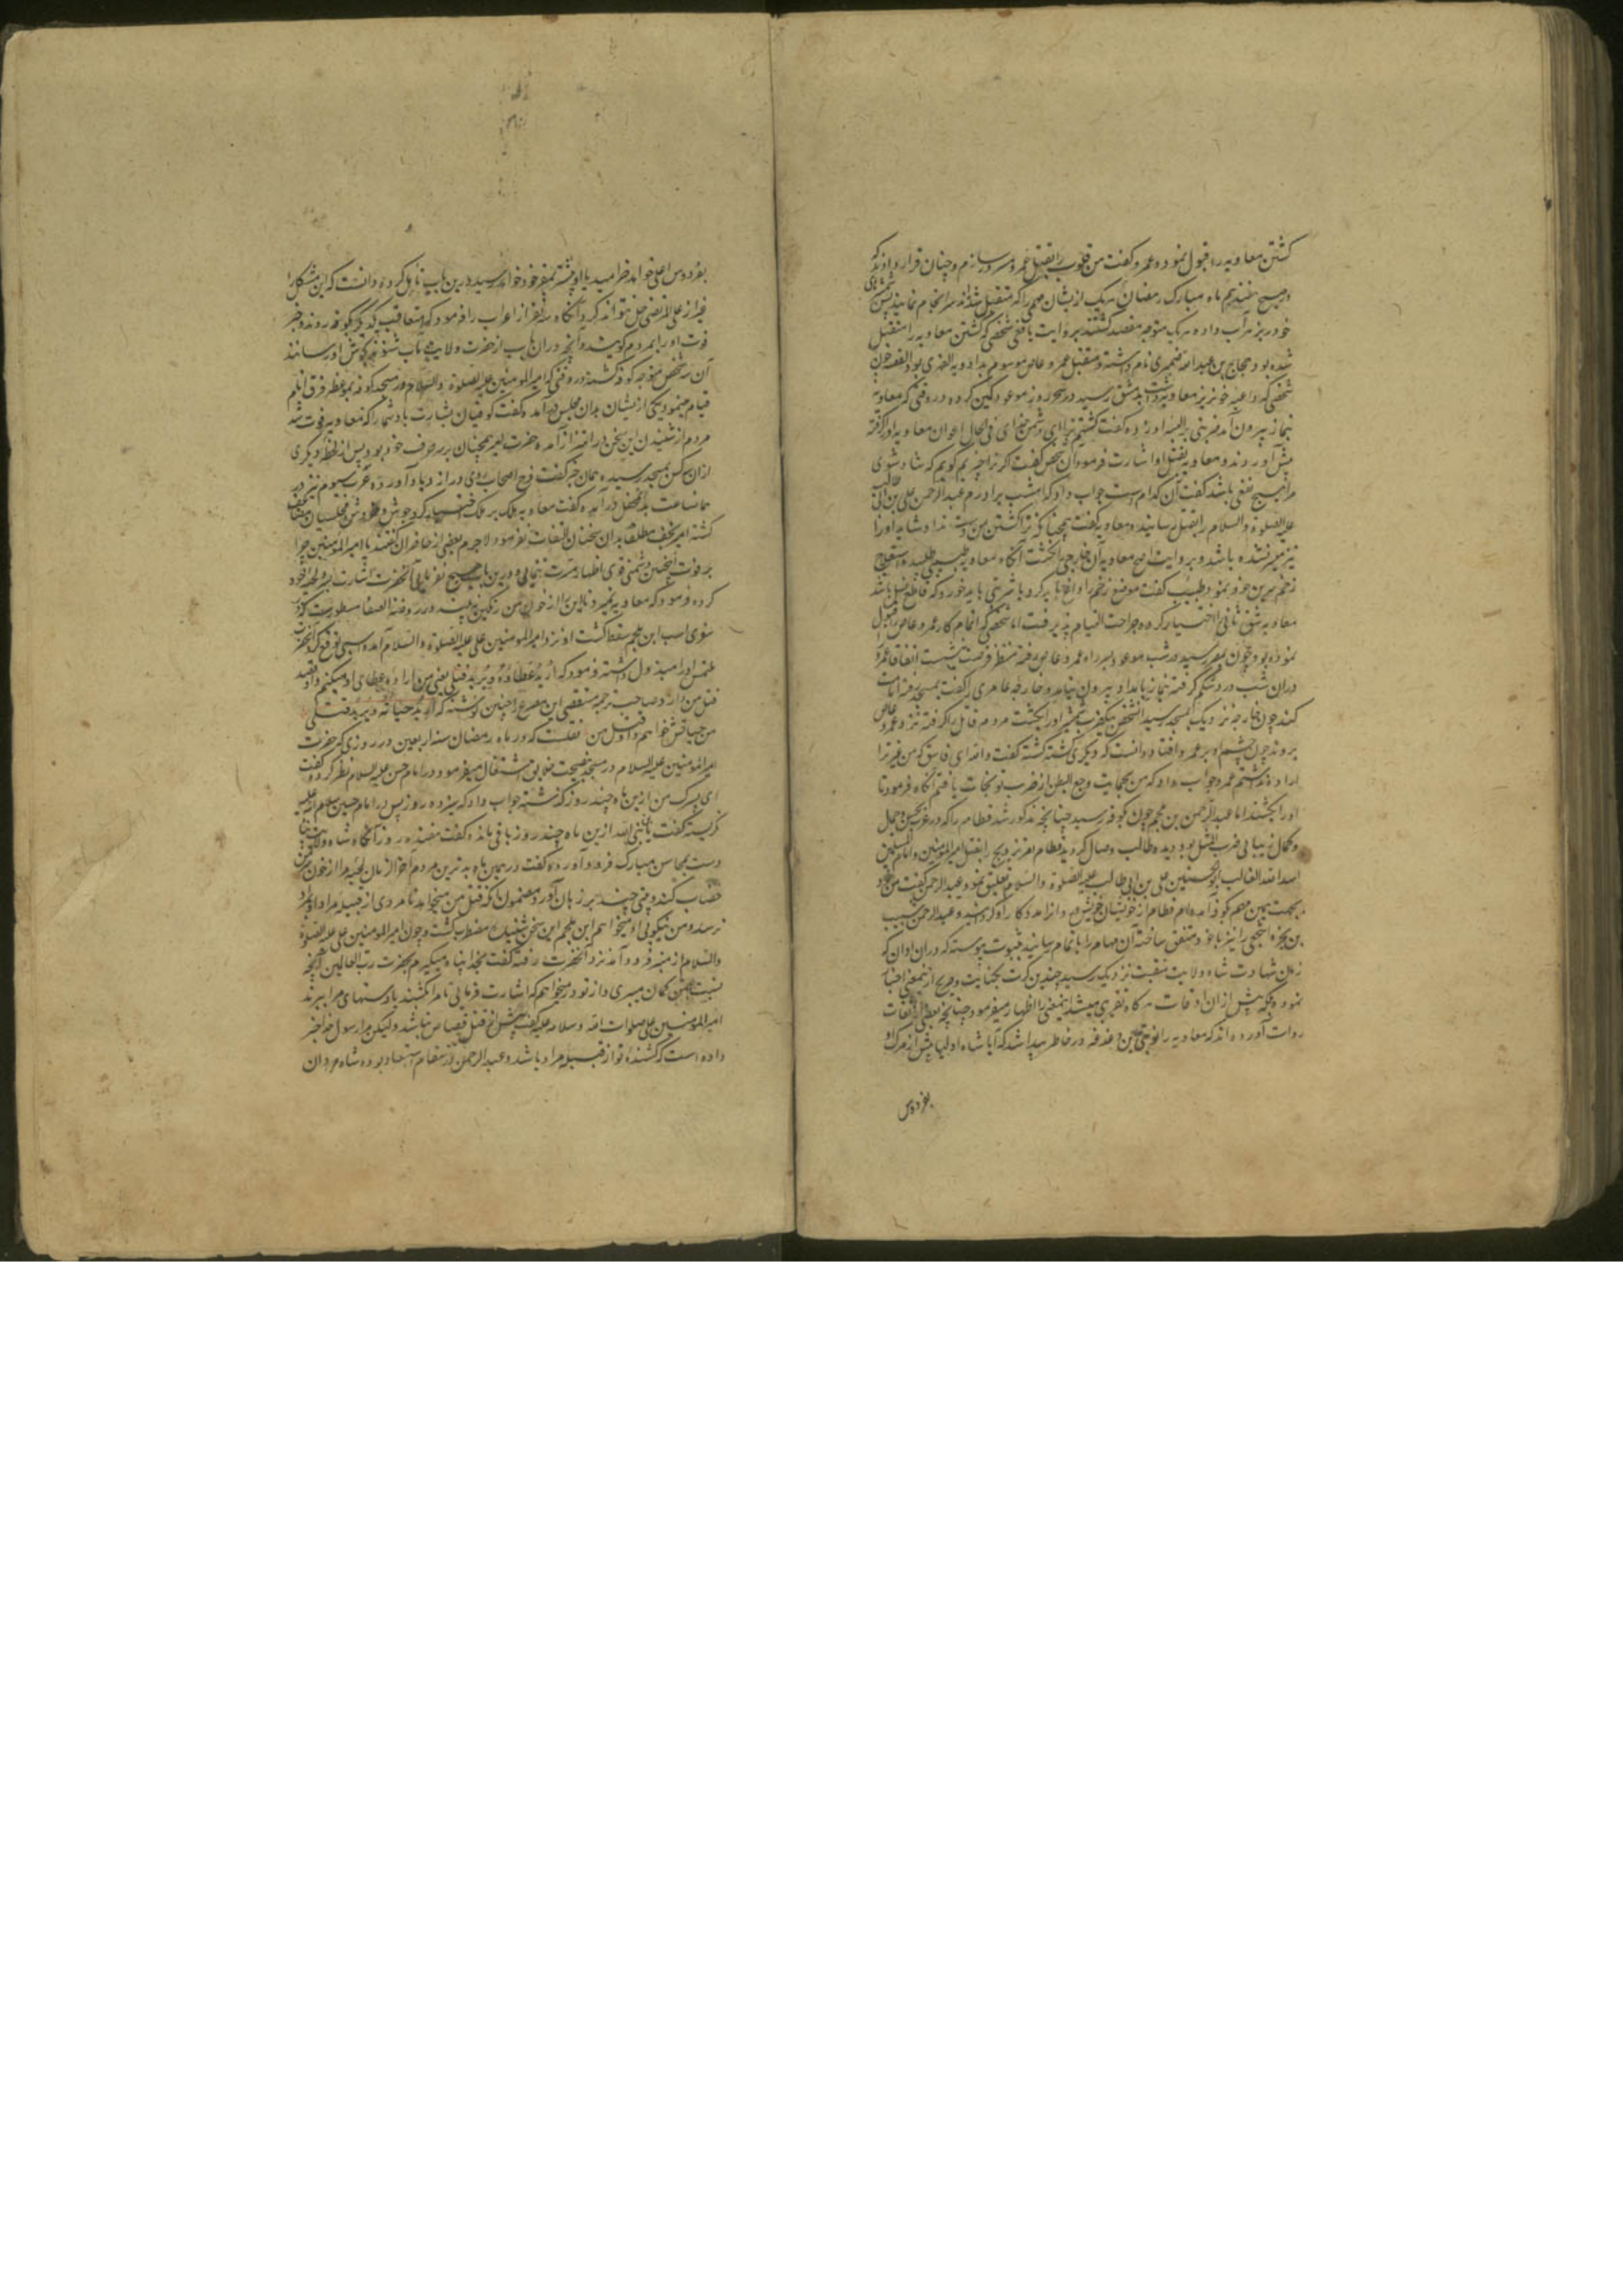 کشتن معاویه را قبول نمود و عمرو کفت من قلوب را بقتل عمرو مسرور سازم و چنان قرار دادند که
در صبح هفدهم ماه مبارک رمضان هر یک ازیشان مهمی را که متقبل شده اند سرانجام نمایند پس
خود را بزهر آب داده هر یک متوجه مقصد کشتند بروایت یافعی شخصی که کشتن معاویه را متقبل
شده بود حجاج بن عبدالله ضمیری نام داشته و متقبل عمرو عاص موسوم بدادویه العنبری بود القصه چون
شخصی که داعیه خونریز معاویه داشت بدمشق رسید در سحر روز موعود کمین کرده در وقتی که معاویه
بنماز بیرون آمد ضربتی بر الیه او زده کفت کشتم ترا ای دشمن خدای فی الحال اعوان معاویه او را کرفته
پیش آوردند و معاویه بقتل او اشارت فرمود آن شخص کفت که ترا خبری بکویم که شاد شوی
مرا هیچ نفعی باشد کفت آن کدام است جواب داد که امشب برادرم عبدالرحمن علی بن ابی طالب
علیه الصلوة والسلام را بقتل رسانید و معاویه کفت همچنانکه ترا کشتن من دست نداد شاید او را
نیز میسر نشده باشد و بروایت اصح معاویه آن خارجی را بکشت آنکاه معاویه طبیبی طلبیده استعلاج
زخم سرین خود نمود طبیب کفت موضع زخم را داغ باید کرد یا شربتی باید خورد که قاطع نسل باشد
معاویه شق ثانی اختیار کرده جراحت التیام پذیرفت اما شخصی که اتمام کار عمرو عاص را قبول
نموده بود چون بمصر رسید در شب موعود بسر راه عمرو عاص رفته منتظر فرصت بنشست اتفاقا عمرو
دران شب درد شکم کرفته بنماز بامداد بیرون نیامد و خارجه عامری را کفت بمسجد رفته امامت
کند چون خارجه نزدیک بمسجد رسید آن شخص بیک ضرب شمشیر او را بکشت مردم قاتل را کرفته نزد عمرو عاص
بردند چون چشم او بر عمرو افتاد دانست که دیکری کشته کشته کفت والله ای فاسق که من غیر ترا
اراده نداشتم عمرو جواب داد که من بحمایت وجع البطن از ضرب تو نجات یافتم آنکاه فرمود تا
او را بکشتند اما عبدالرحمن بن ملجم چون بکوفه رسید چنانچه مذکور شد قطامه را که در غرب حسن و جمال
و کمال زیبایی ضرب المثل بود دیده طالب وصال کردید قطام تعزیز و تزویج را بقتل امیرالمؤمنین و امام المسلمین
اسد الله الغالب ابوالحسنین علی بن ابی طالب علیه الصلوة والسلام تعلیق نمود عبدالرحمن کفت من خود
بجهت همین مهم بکوفه آمده ام قطام از خویشان خویش وردان را بمدد کار او کردانید و عبدالرحمن شبیب
بن بجره اشجعی را نیز با خود متفق ساخته آن مهام را باتمام رسانیدند بثبوت پیوسته که دران اوان که
زمان شهادت شاه ولایت منقبت نزدیک رسید چندین کرت بکنایت و صریح ازین معنی اخبار
نموده بلکه پیش ازان اوقات هر کاه تقریبی میشد این معنی را اظهار میفرمود چنانچه بعضی از ثقات
روات آورده اند که معاویه را نوبتی این دغدغه در خاطر پیدا شد که آیا شاه اولیا پیش از مرک او
بفردوس
بفردوس اعلی خواهد خرامید یا او پیشتر بمقر خود خواهد رسید درین باب تامل کرده دانست که این مشکل را
غیر از علی المرتضی حل نتواند کرد آنکاه سه نفر از اعراب را فرمود که متعاقب یکدیکر بکوفه روند و خبر
فوت او را بمردم کویند و آنچه دران باب از حضرت ولایت مآب شنوند بکوش او رسانند
آن سه شخص متوجه کوفه کشتند در وقتی که امیرالمؤمنین علیه الصلوة والسلام در مسجد کوفه بموعظه فرق انام
قیام مینمود یکی ازیشان بدان مجلس درآمده کفت کوفیان بشارت باد شما را که معاویه فوت شد
مردم از شنیدن این سخن در اهتزاز آمده حضرت امیر همچنان بر سر حرف خود بود پس از لحظه دیکری
ازان سه کس بمسجد رسیده همان خبر کفت فرح اصحاب روی در ازدیاد آورده عرب سوم نیز در
همان ساعت بدان محفل درآمده کفت معاویه هلک بر ملک اختیار کرد جوش و خروش مجلسیان مضاعف
کشته امیر نجف مطلقا بدان سخنان التفات نفرمود لاجرم بعضی از حاضران کفتند یا امیرالمؤمنین چرا
بر فوت اینچنین دشمنی قوی اظهار مسرت ننمایی و درین باب هیچ نفرمایی آنحضرت اشارت بسر و لحیه خود
کرده فرمود که معاویه نمیرد تا این را از خون من رنکین نه بیند و در روضة الصفا مسطورست که
نوبتی اسب ابن ملجم سقط کشت او نزد امیرالمؤمنین علی علیه الصلوة والسلام آمده اسبی توقع کرد آنحضرت
ملتمس او را مبذول داشته فرمود که ارید عطاءه و یرید قتلی یعنی من اراده عطای او میکنم و او قصد
قتل من دارد و صاحب ترجمه مستقصی این مصرع را چنین نوشته که ارید حیاته و یرید قتلی
من حیاتش خواهم و او قتل من نقلست که در ماه رمضان سنه اربعین در روزی که حضرت
امیرالمؤمنین علیه السلام در مسجد بنصیحت خلایق اشتغال میفرمود در امام حسن علیه السلام نظر کرده کفت
ای پسرک من ازین ماه چند روز کذشته جواب داد که سیزده روز پس در امام حسین سلام الله علیه
نکریسته کفت یا بنی الله ازین ماه چند روز باقی مانده کفت هفده روز آنکاه شاه ولایت پناه
دست بمحاسن مبارک فرود آورده کفت در همین ماه بدترین مردم آخر الزمان لحیه مرا از خون سر من
خضاب کند و بیتی چند بر زبان آورد مضمون آنکه قتل من میخواهد نامردی از قبیله مراد او بمراد
نرسد و من نیکویی او میخواهم ابن ملجم این سخن شنیده مضطرب کشت و چون امیرالمؤمنین علی علیه الصلوة
والسلام از منبر فرود آمد نزد آنحضرت رفته کفت بخدا پناه میکیرم بحضرت رب العالمین آنچه
نسبت بمن کمان میبری و از تو درمیخواهم که اشارت فرمایی تا مرا بکشند یا دستهای مرا ببرند
امیرالمؤمنین علی صلوات الله و سلامه علیه کفت پیش از قتل قصاص نباشد ولیکن مرا رسول خدا خبر
داده است که کشنده تو از قبیله مراد باشد و عبدالرحمن در مقام استبعاد بوده شاه مردان